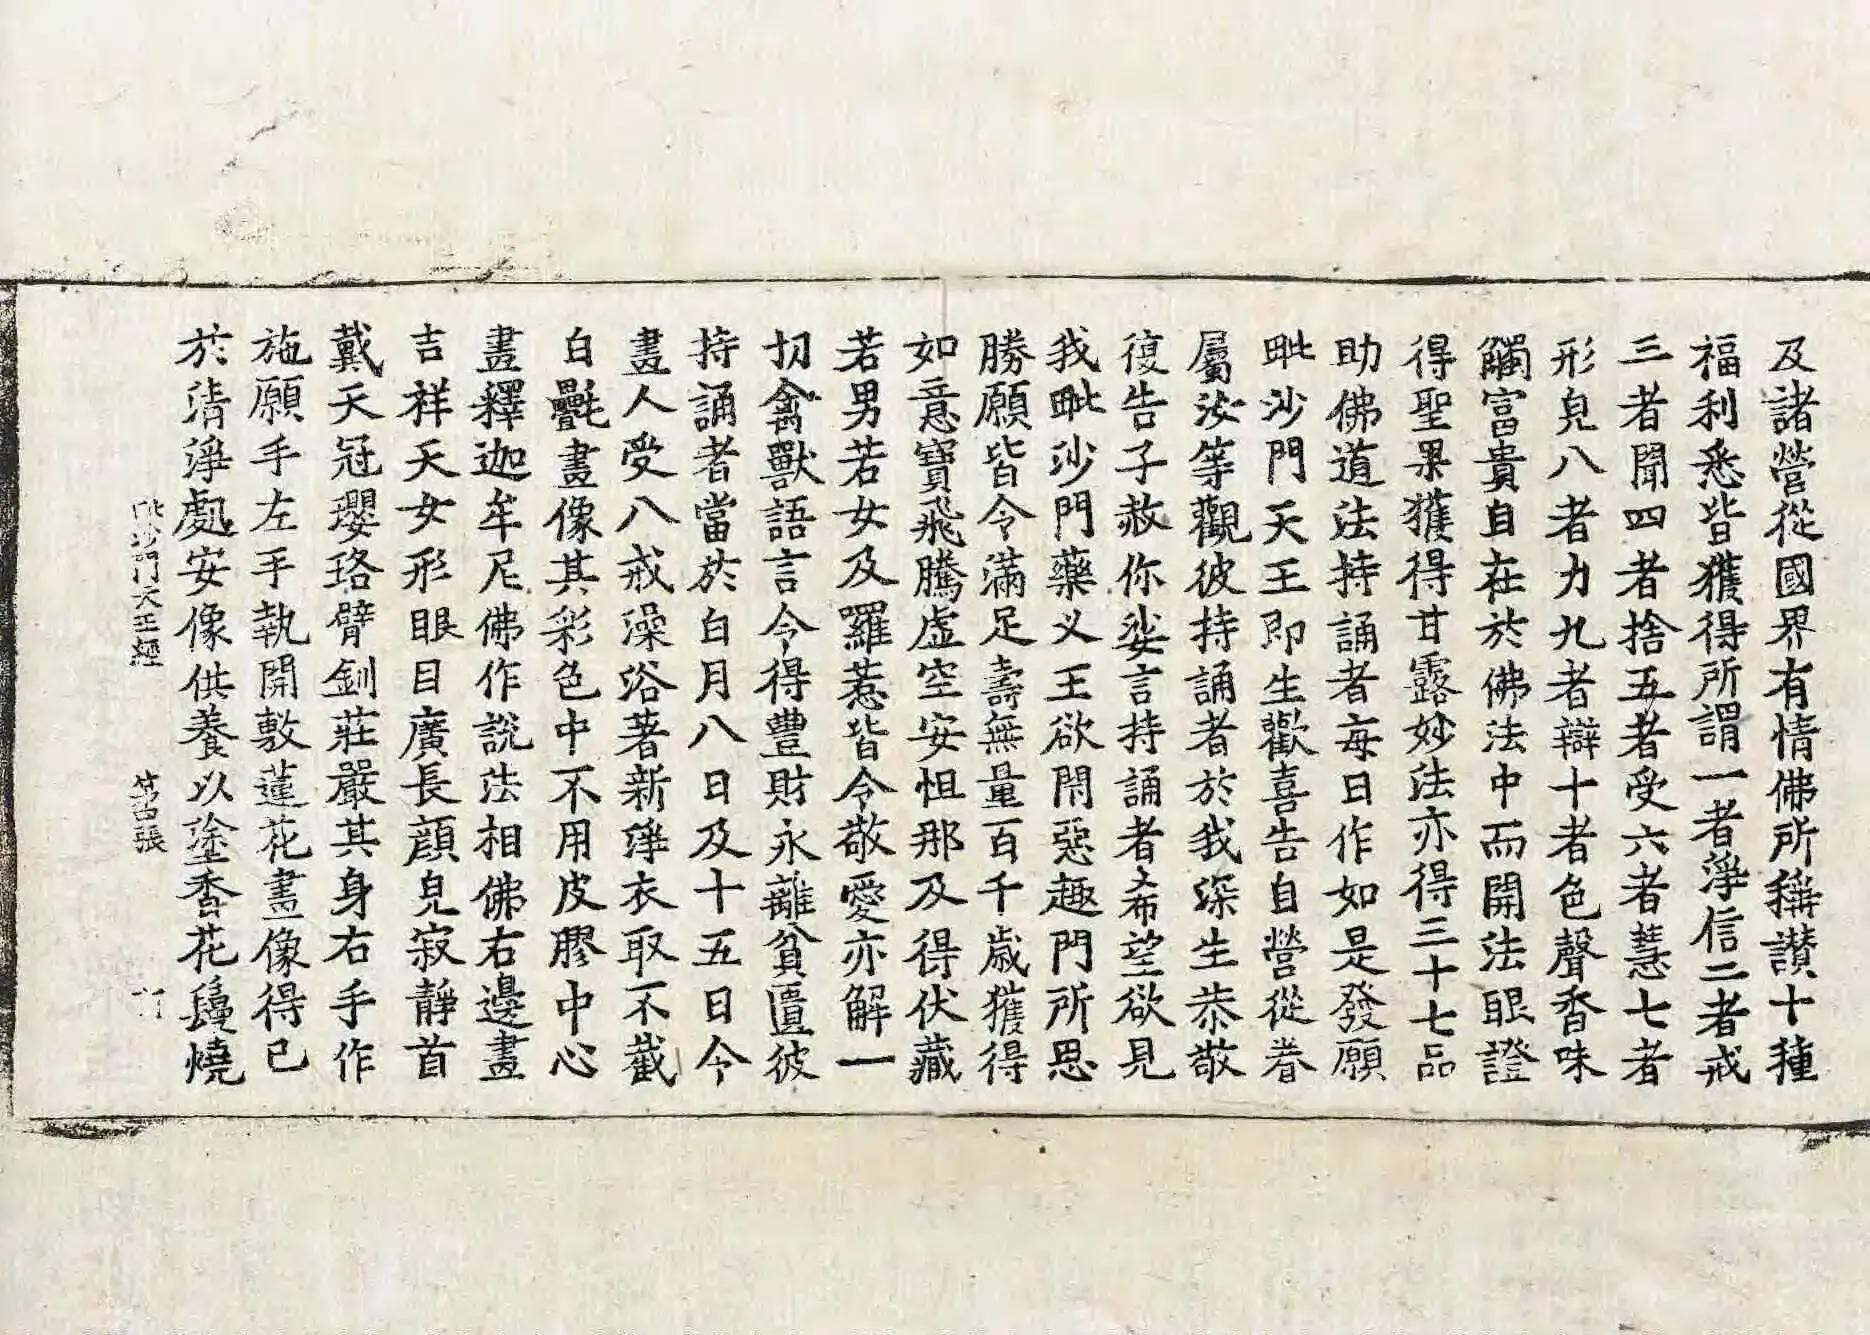 及諸營從國界有情佛所稱讃十種
福利悉皆獲得所謂一者淨信二者戒
三者聞四者捨五者受六者慧七者
形皃八者力九者辯十者色聲香味
觸富貴自在於佛法中而開法眼證
得聖果獲得甘露妙法亦得三十七品
助佛道法持誦者每日作如是發願
毗沙門天王即生歡喜告自營從眷
屬汝等觀彼持誦者於我深生恭敬
復告子赦你娑言持誦者希望欲見
我毗沙門藥义王欲閇惡趣門所思
勝願皆令滿足壽無量百千歲獲得
如意寶飛騰虛空安怛那及得伏藏
若男若女及羅惹皆令敬愛亦解一
切禽獸語言令得豐財永離貧匱彼
持誦者當於白月八日及十五日令
畫人受八戒澡浴著新淨衣取不截
白㲲畫像其彩色中不用皮膠中心
畫釋迦牟尼佛作說法相佛右邊畫
吉祥天女形眼目廣長顔皃寂靜首
戴天冠瓔珞臂釧莊嚴其身右手作
施願手左手執開敷蓮花畫像得已
於清淨處安像供養以塗香花鬘燒
毗沙門天王經 張